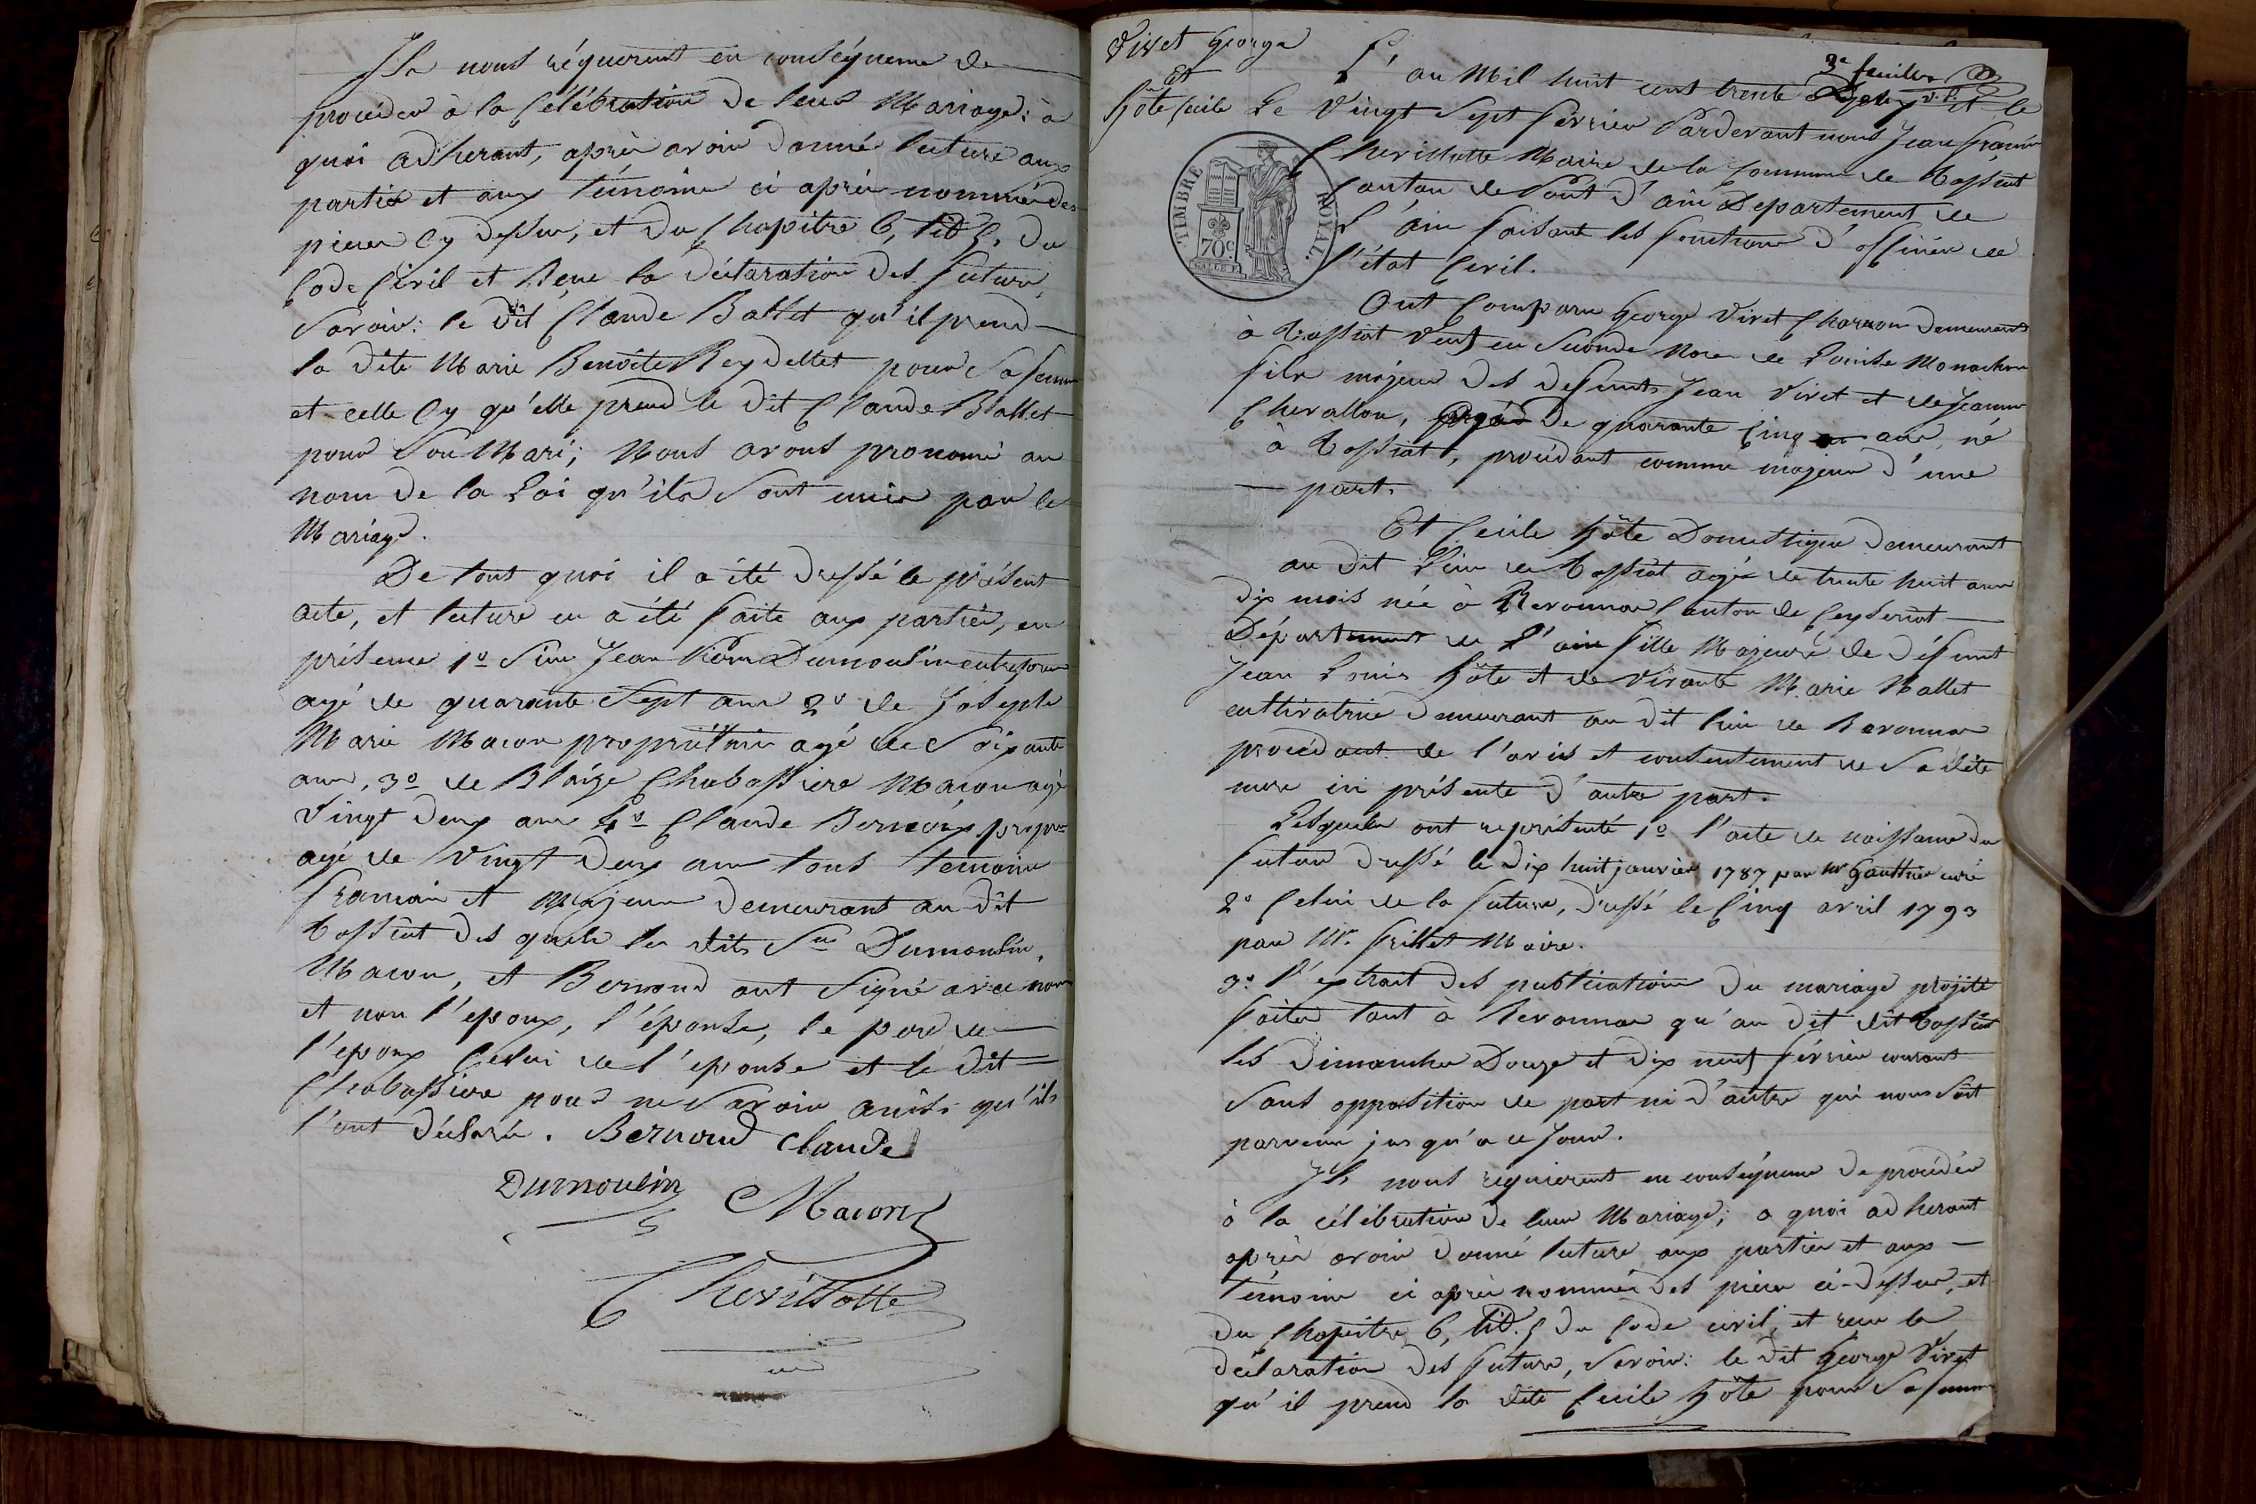 Ils nous réquerent en conséquence de
procéder à la Célébration de leur Mariage: à
quoi adherant, après avoir donné lecture aux
parties et aux témoins ci après nommés des
pieces Cy dessus, et du Chapitre 6, tit 5, du
Code Civil et Reçue la déclaration des futurs,
Savoir: le dit Claude Ballet qu'il prend
la dite Marie Benoite Reydellet pour Sa femme
et celle Cy qu'elle prend le dit Claude Ballet
pour Son Mari; Nous avons prononcé au
nom de la Loi qu'ils Sont unis par le
Mariage.
De tout quoi il a été dressé le présent
acte, et lecture en a été faite aux parties, en
présence 1º Sieur Jean Dumoulin
agé de quarante Sept ans 2º de Joseph
Marie Macon propriétaire agé de Soixante
ans, 3º de Blaize Chabossiere Maçon agé
Vingt deux ans 4º Claude Bernoux propre
agé de Vingt deux ans tous témoins
francais et Majeurs demeurant au dit
Tossiat des quels les dits Sieurs Dumoulin,
Macon, et Bernoud ont Signé avec nous
et non l'epoux, l'épouse, le pere de
l'epoux Celui de l'epouse et le dit
Chabossiere pour ne Savoir ainsi qu'ils
l'ont déclaré. Bernoud Claude
Dumoulin Macon
Chevillotte
Vivet George
Et
Hôte Cécile
3e feuille
L'an Mil huit cent trente et le
Le Vingt Sept fevrier Pardevant nous Jean François
Chevillotte Maire de la Commune de Tossiat
Canton de Pont d'ain Departement de
L'ain faisant les fonctions d'officier de
l'état Civil.
TIMBRE ROYAL.
70c
Ont Comparu George Vivet Charron demeurant
à Tossiat Veuf en Seconde Noce de Louise Monachon
fils majeur des defunts Jean Vivet et de Jeanne
Chevallon, agé de quarante Cinq ans, né
à Tossiat, procédant comme majeur d'une
part.
Et Cecile Hôte Domestique demeurant
au dit Lieu de Tossiat agée de trente huit ans
dix mois née à Revonnas Canton de Ceyseriat
Département de L'ain fille Majeure de défunt
Jean Louis Hôte et de vivante Marie Mallet
cultivatrice demeurant au dit lieu de Revonnas
procédant de l'avis et consentement de Sa dite
mere ici présente d'autre part.
Lesquels ont représenté 1º l'acte de naissance du
futur dressé le dix huit janvier 1787 par Mr Gauthier curé
2º Celui de la future, dressé le Cinq avril 1793
par Mr. frillet Maire.
3º l'extrait des publications du mariage projeté
faites tant à Revonnas qu'au dit dit Tossiat
les dimanches Douze et dix neuf février courant
Sans opposition de part ni d'autre qui nous Soit
parvenu jusqu'a ce Jour.
Ils nous requierent en conséquence de procéder
à la célébration de leur Mariage; a quoi adherant
après avoir donné lecture aux parties et aux
témoins ci après nommés des pieces ci-dessus, et
du Chapitre 6, tit. 5 du Code civil, et reçu la
déclaration des futurs, Savoir: le dit George Vivet
qu'il prend la dite Cecile Hôte pour Sa femme